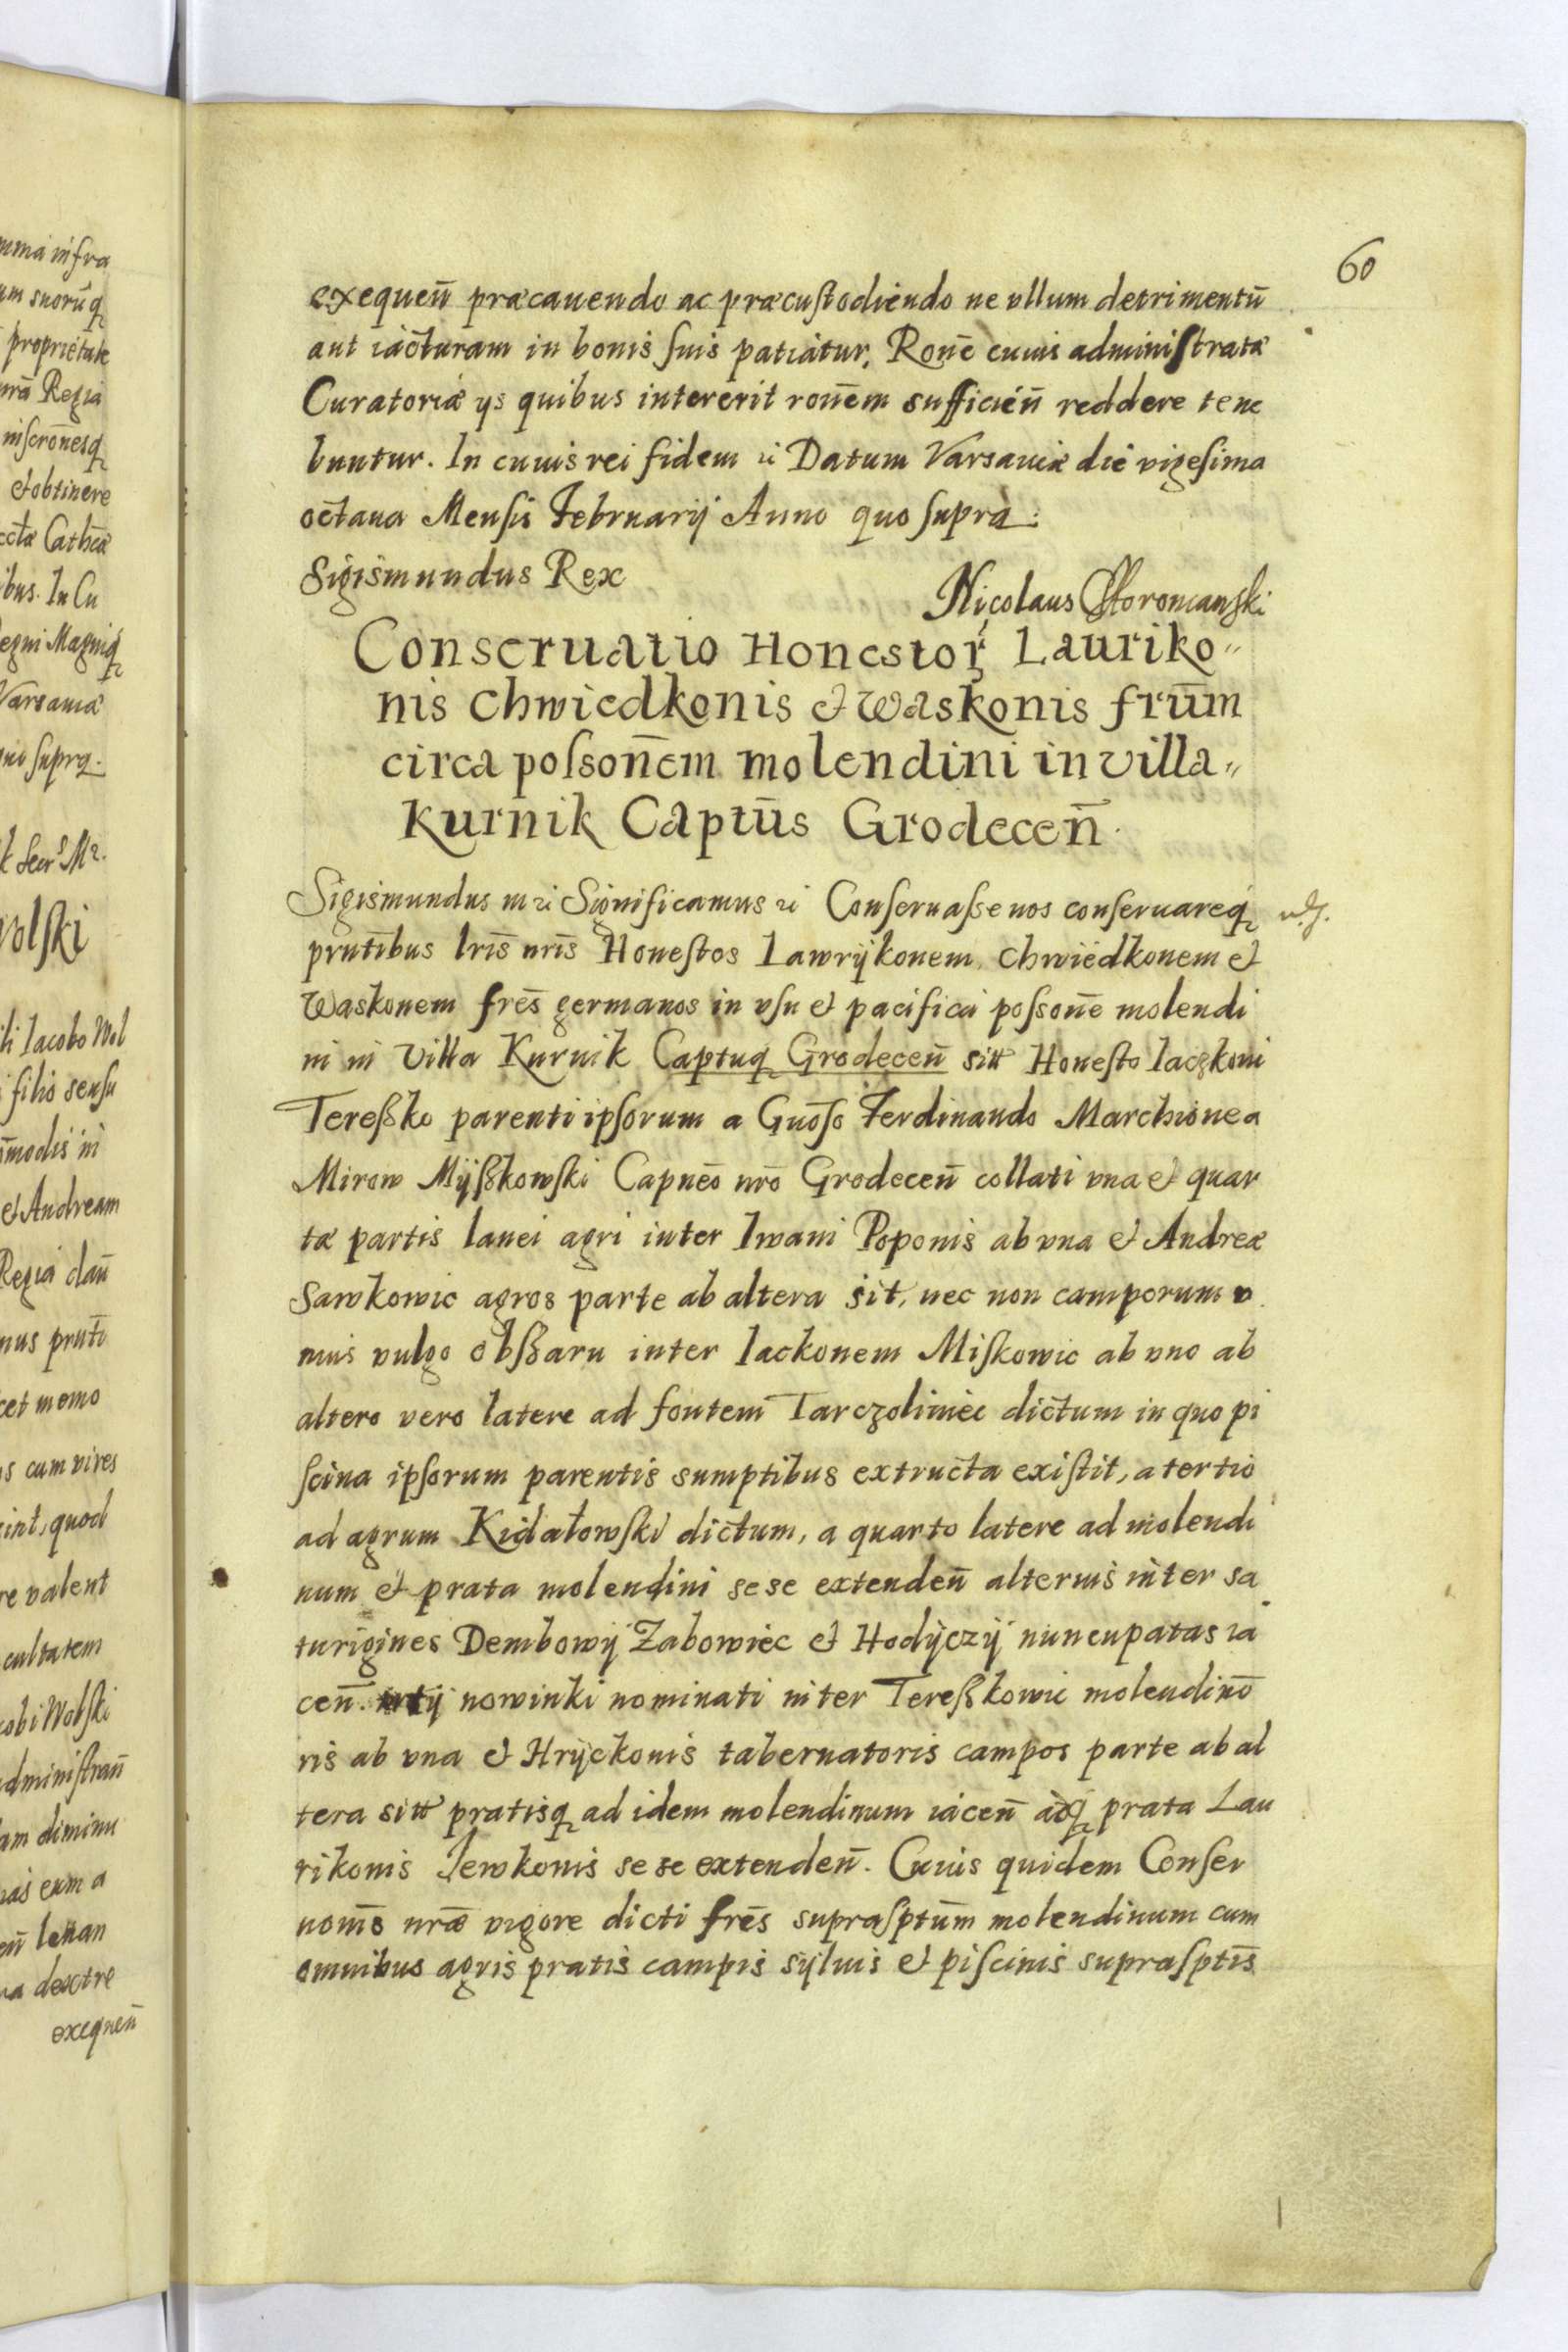 60
exequen̄ præcauendo ac præcustodiendo ne vllum detrimentū
aut iacturam in bonis suis patiatur, Ronē cuius administratæ
Curatoriæ ys quibus intererit ronēm sufficien̄ reddere tene
buntur. In cuius rei fidem Datum Varsauiæ die vigesima
octaua Mensis Februarij Anno quo supra.
Sigismundus Rex
Nicolaus
Conseruatio Honestor Lauriko
nis Chwiedkonis et Waskonis frūm
circa possonēm molendini in villa
Kurnik Captūs Grodecen̄.
Sigismundus Significamus Conseruasse nos conseruareq
prntibus lris nris Honestos Lawrykonem Chwiedkonem et
Waskonem frēs germanos in vsu et pacifica possonē molendi
ni in Villa Kurnik Captuq Grodecen̄ sitt Honesto Iaczkoni
Tereßko parenti ipsorum a Gnoso Ferdinando Marchione a
Mirow Myßkowski Capneō nrō Grodecen̄ collati vna et quar
tæ partis lanei agri inter Iwani Poponis ab vna et Andreæ
Sawkowic agros parte ab altera sit, nec non camporum v
nius vulgo obßaru inter Iackonem Miskowic ab vno ab
altero vero latere ad fontem Tarczoliniec dictum in quo pi
scina ipsorum parentis sumptibus extructa existit, a tertio
ad agrum Kidałowski dictum, a quarto latere ad molendi
num et prata molendini sese extenden̄ alterius inter sa
turigines Dembowy Zabowiec et Hodyczy nuncupatas ia
cen̄. nowinki nominati inter Tereßkowic molendinō
ris ab vna et Hryckonis tabernatoris campos parte ab al
tera sitt pratisq ad idem molendinum iacen̄ adq prata Lau
rikonis Iewkonis sese extenden̄. Cuius quidem Conser
nonis nræ vigore dicti frēs suprasptūm molendinum cum
omnibus agris pratis campis syluis et piscinis suprasptis